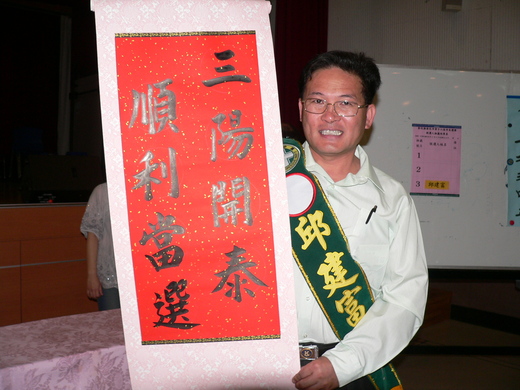 三陽開泰
順利當選
邱建富
1
2
3
邱建富